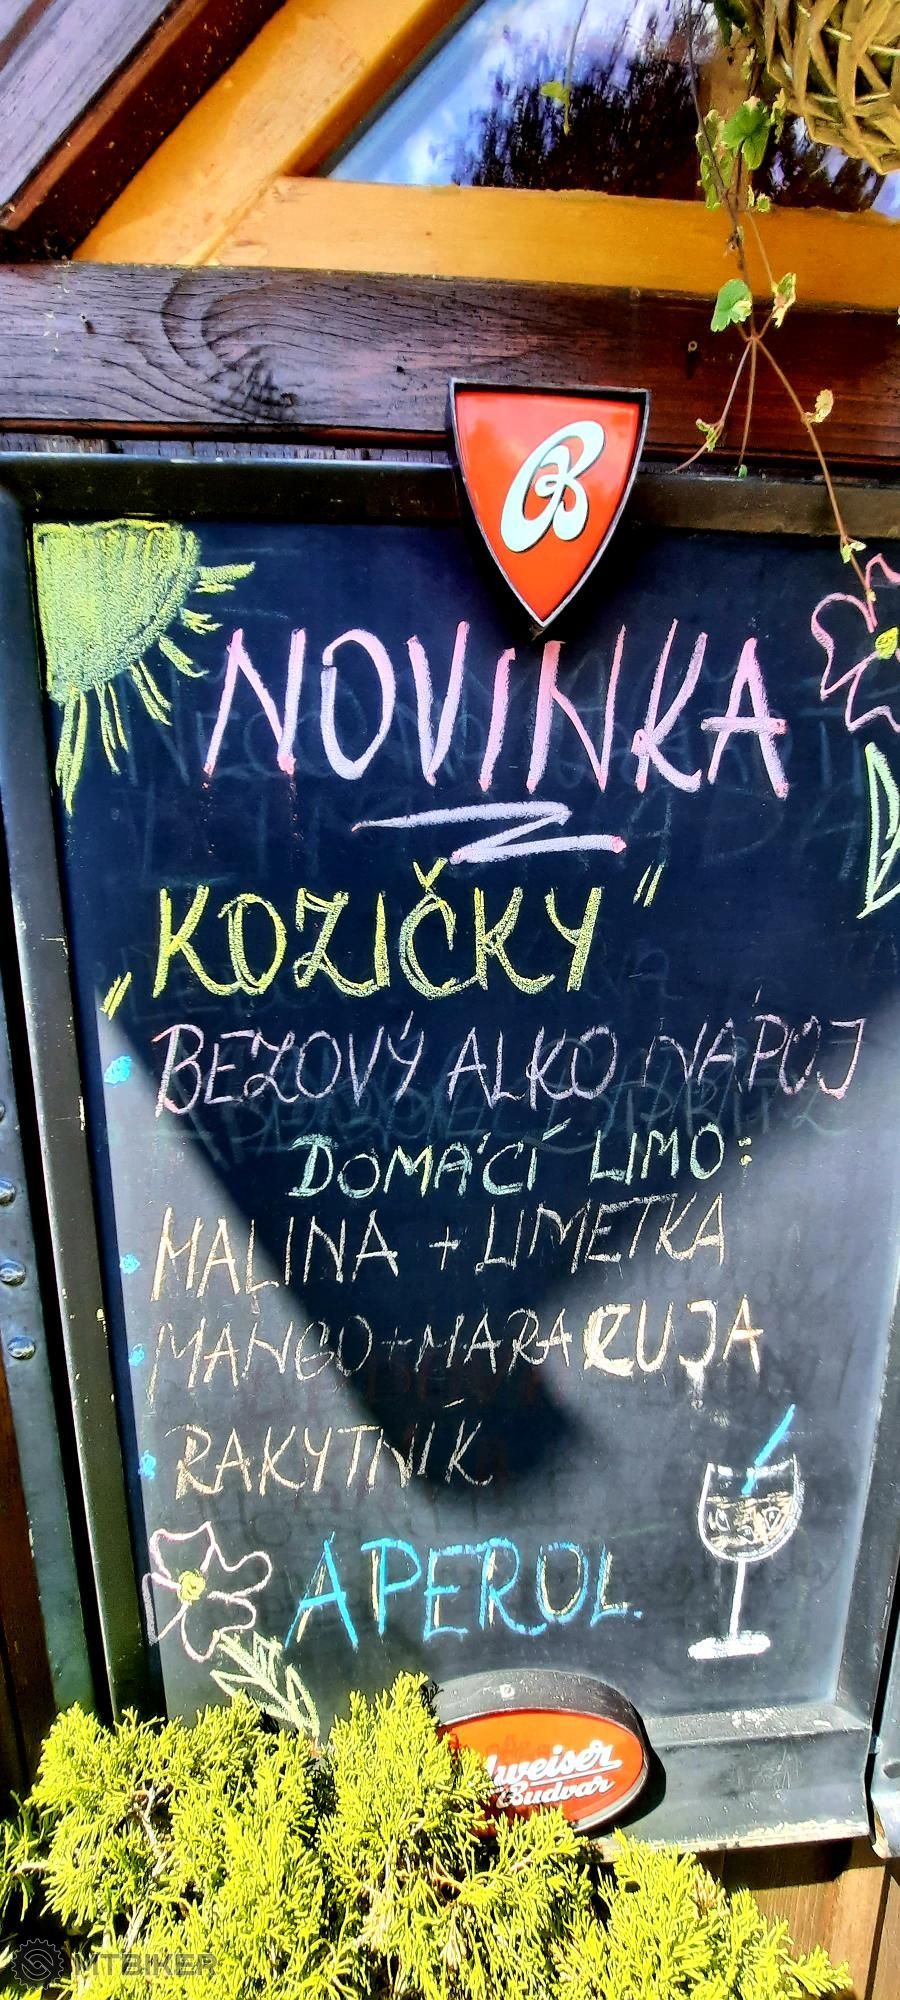 B
NOVINKA
„KOZIČKY"
BEZOVÝ ALKO NÁPOJ
DOMÁCÍ LIMO:
MALINA + LIMETKA
MANGO+MARACUJA
RAKYTNÍK
APEROL.
dweiser
Budvar
MTBIKER